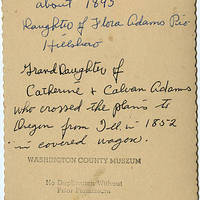 about 1895
Daughter of Flora Adams Pio
Hillsboro
GrandDaughter of
Catherine & Calvan Adams
who crossed the plains to
Oregon from Ill. in 1852
in covered wagon.
WASHINGTON COUNTY MUSEUM
No Duplication Without
Prior Permission